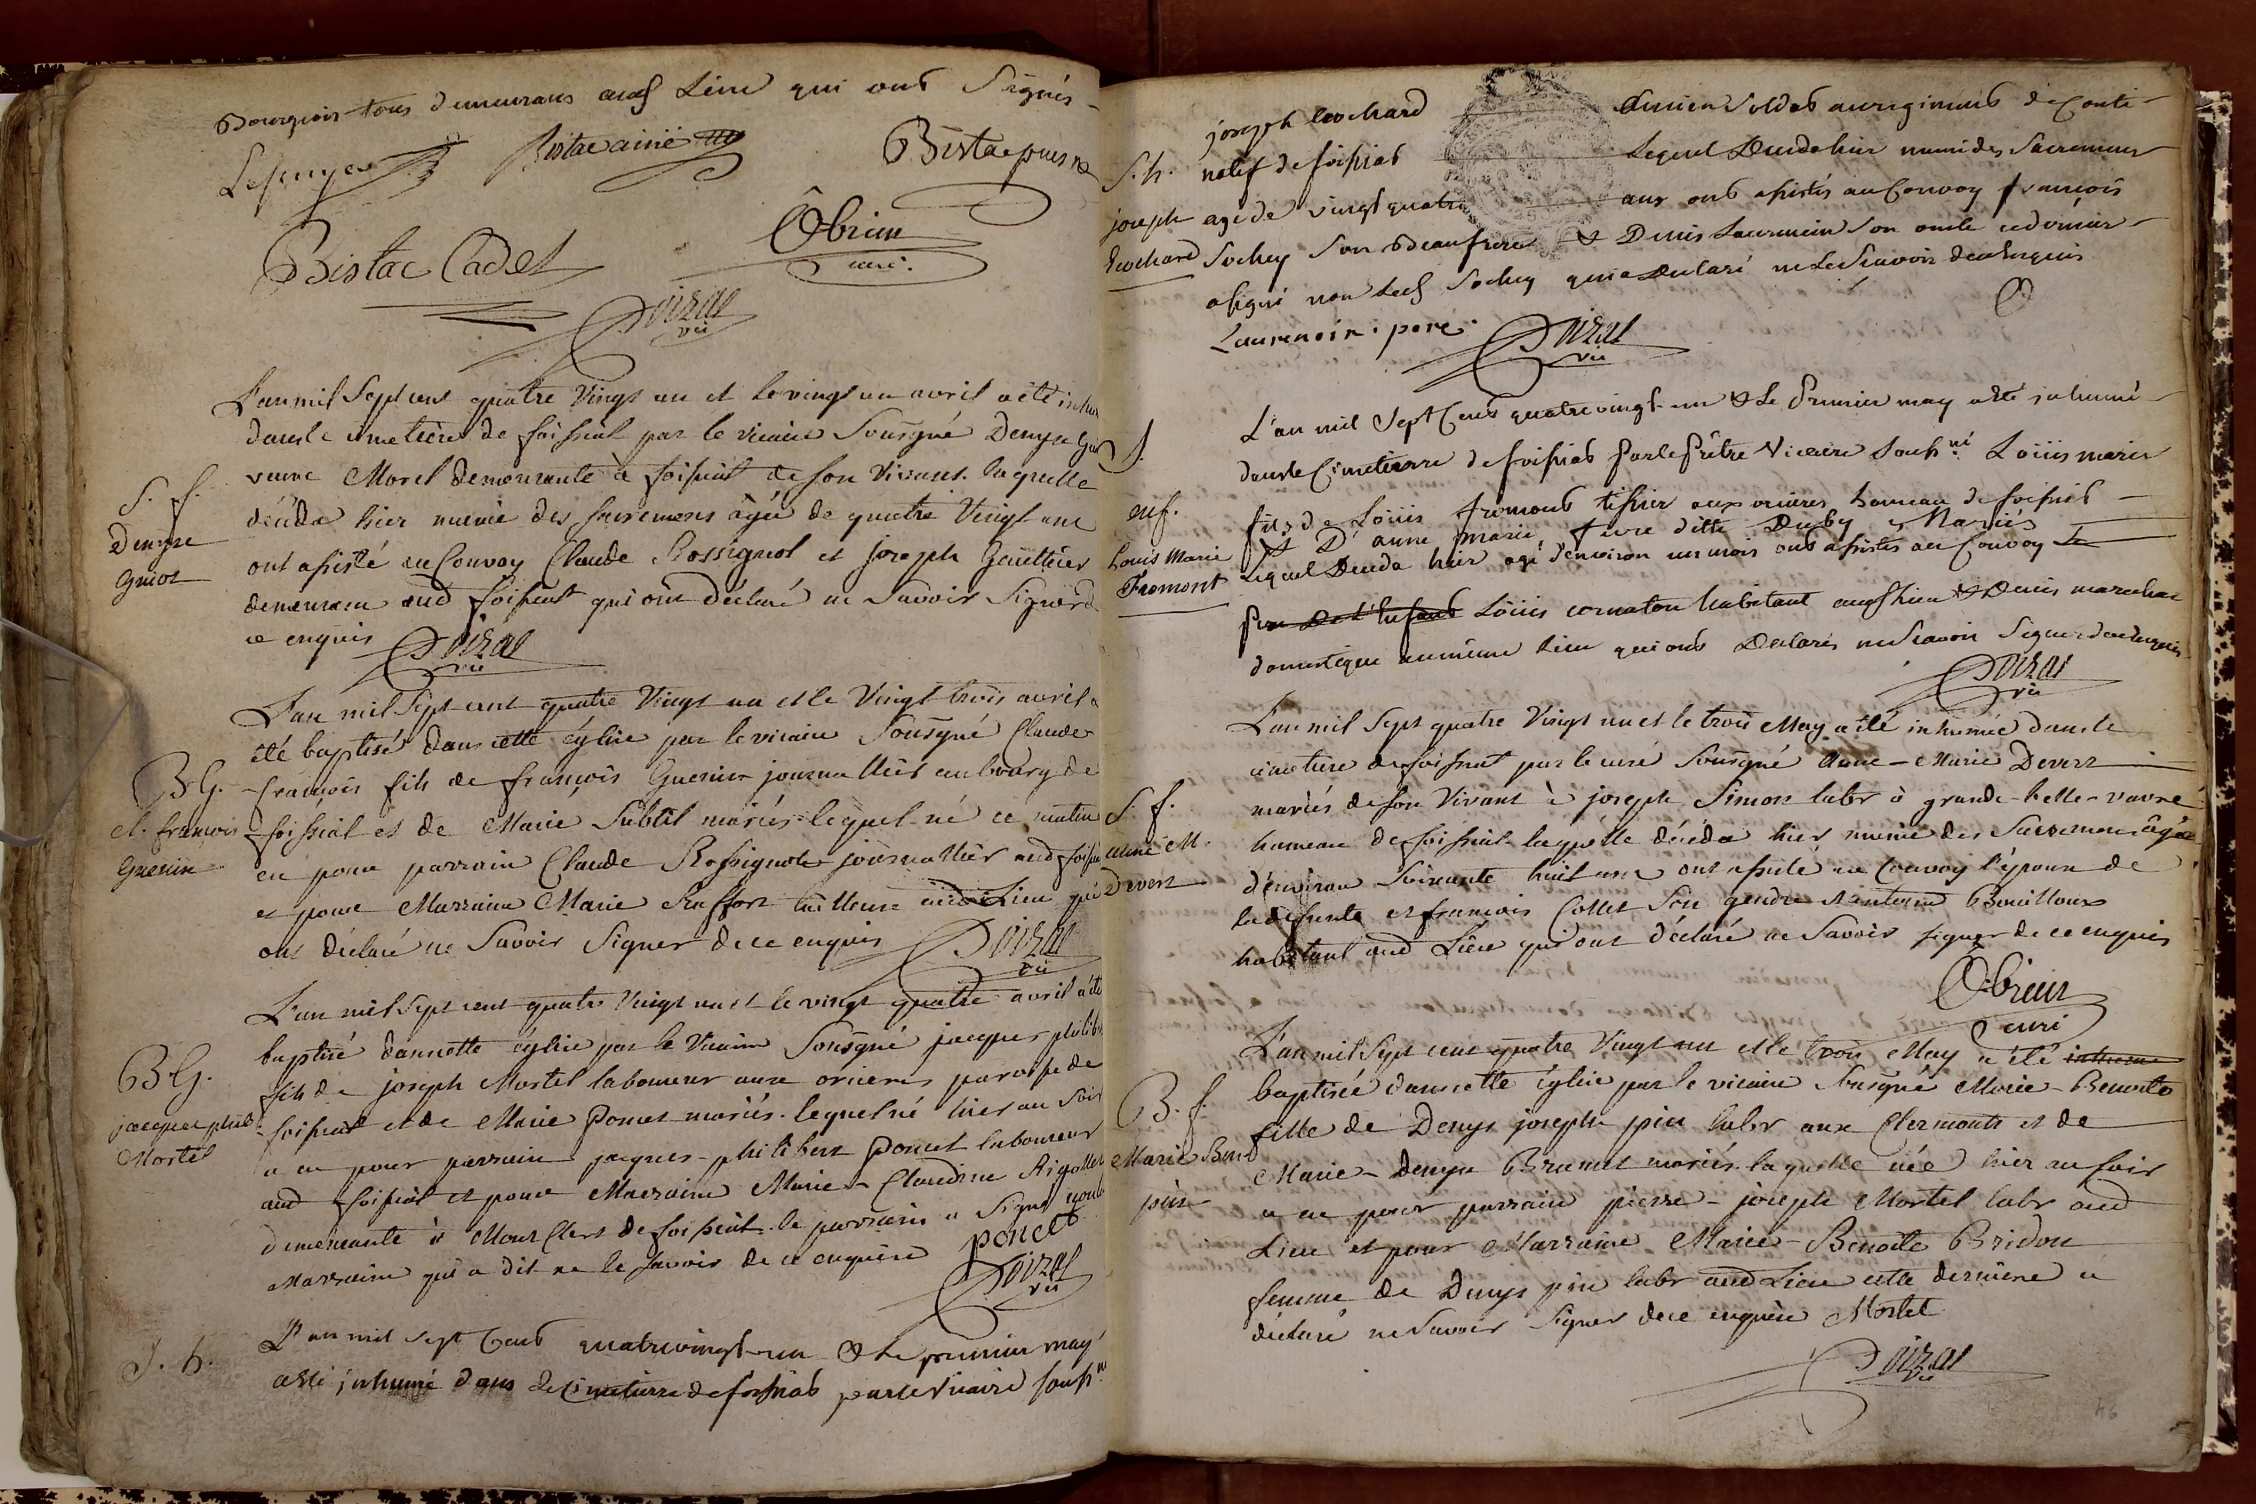 Bourgeois tous demeurans aud. Lieu qui ont Signés
Bistac ainé
Bistac puis né
Bistac Cadet
Obrien
curé.
Doizat
vic
L'an mil Sept cent quatre Vingt un et le vingt un avril a été inhu
dans le cimetière de foissiat par le vicaire Sousigné Denyse Guiot
veuve Morel demeurante à foissiat de son Vivant. laquelle
décéda hier munie des sacremens âgée de quatre Vingt ans
ont assisté au Convoy Claude Rossignol et joseph Gauthier
demeurans aud. foissiat qui ont déclaré ne Savoir Signer d
ce enquis Doizat
vic
S. f.
Denyse
Guiot
L'an mil Sept cent quatre Vingt un et le Vingt trois avril a
été baptisé dans cette église par le vicaire Sousigné Claude
françois fils de françois Guerin journallier au bourg de
foissiat et de Marie Subtil mariés lequel né ce matin
eu pour parrain Claude Rossignol journallier aud. foissia
et pour Marraine Marie tailleuse aud. Lieu qui
ont déclaré ne Savoir Signer de ce enquis Doizat
vic
B G.
cl. françois
Guerin
L'an mil Sept cent quatre Vingt un et le vingt quatre avril a été
baptisé dans cette église par le Vicaire Sousigné jacques philib
fils de joseph Mortel laboureur aux orcieres paroisse de
foissiat et de Marie Poncet mariés. lequel né hier au Soir
a eu pour parrain jacques-philibert Poncet laboureur
aud. foissiat et pour Marraine Marie-Claudine Rigollet
demeurante à Mont Clers de foissiat. le parrain a Signé
Marraine qui a dit ne le savoir de ce enquise poncet
Doizat
vic
B G.
jacques phil
Mortel
S. h.
L'an mil sept Cent quatrevingt-un & le premier may
a été inhumé dans le Cimetierre de foissiat par le Vicaire souss.né
joseph ancien Soldat au regiment de Conti
S. h. natif de foissiat Lequel Deceda hier muni des Sacremens
joseph agé de vingt quatre ans ont assistés au Convoy françois
Sochey Son Beaufrere & Denis Laurencin Son oncle ce dernier
a signé non led. Sochey qui a Declaré ne Le Scavoir de ce Enquis
Laurencin. Doizat
vic
L'an mil Sept Cent quatrevingt-un & Le Premier may a été inhumé
dans le Cimetierre de foissiat Par le Prêtre Vicaire souss.né Loüis marie
fils de Loüis fromont tissier aux orcieres hameau de foissiat
& D'anne marie ditte Duby Mariés
Lequel Deceda hier agé d'environ un mois ont assistés au Convoy Le
Pere De L'Enfant Loüis cornaton habitant aud. Lieu & Denis marechal
domestique au même Lieu qui ont Declarés ne Scavoir Signer de ce Enquis
Doizat
vic
S.
enf.
Louis Marie
Fromont
L'an mil Sept quatre Vingt un et le trois May a été inhumée dans le
cimetiere de foissiat par le curé Sousigné Anne-Marie Devers
mariés de son Vivant à joseph Simon labr à grande-belle-vavre
hameau de foissiat laquelle décéda hier munie des Sacremens âgée
d'environ Soixante huit ans ont assisté au Convoy l'époux de
la défunte et françois Collet Son gendre et antoine Bouilloux
habitant aud. Lieu qui ont déclaré ne Savoir signer de ce enquis
Obrien
curé
S. f.
anne M.
Devers
L'an mil Sept cent quatre Vingt un et le trois May a été inhumé
baptisée dans cette Eglise par le vicaire Sousigné Marie-Benoite
fille de Denys joseph pin labr aux Clermonts et de
Marie-Denyse Brunet mariés. laquelle née hier au soir
a eu pour parrain pierre-joseph Mortel labr aud.
Lieu et pour Marraine Marie-Benoîte Bridon
femme de Denys pin labr aud. Lieu cette derniere a
déclaré ne Savoir Signer de ce enquise Mortel
Doizat
vic
B. f.
Marie Beno
pin
46